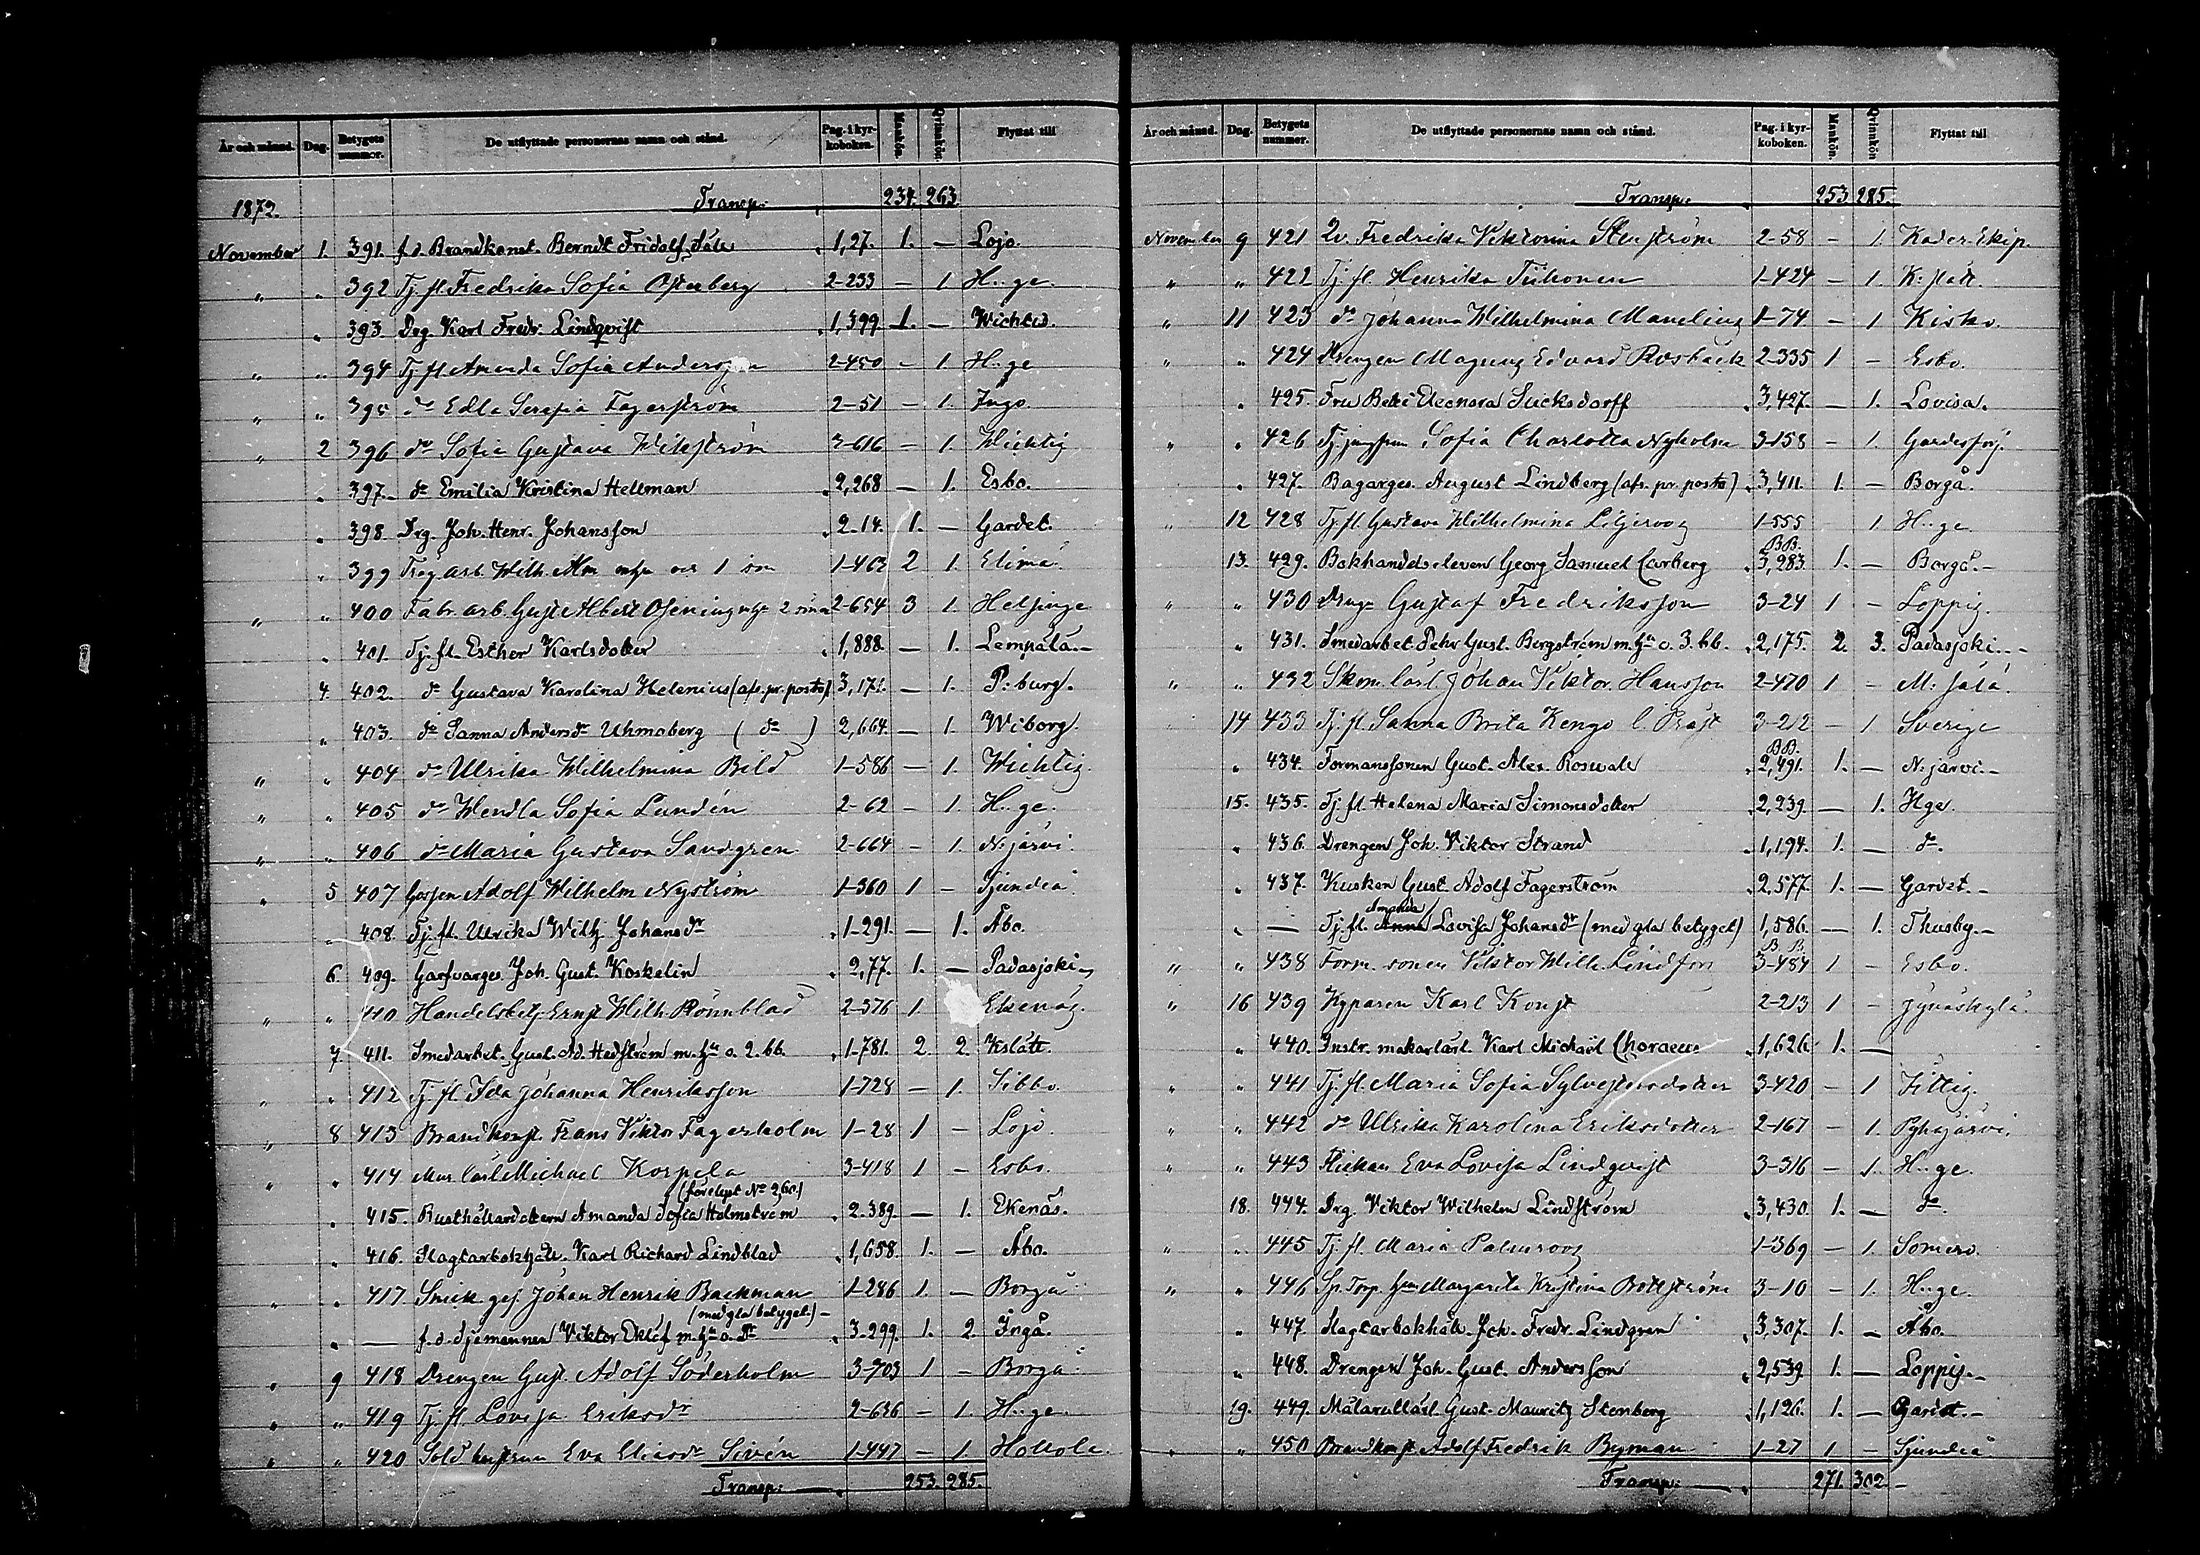 År och månad. Dag. Betygets nummer. De utflyttade personernas namn och stånd. Pag. i kyrkoboken. Mankön. Qvinnkön. Flyttat till
1872. Transp. 234. 263
November 1. 391. f.d. Brandkonst. Berndt Fridolf 1,27. 1. — Lojo.
„ „ 392 Tj. fl. Fredrika Sofia Osterberg 2-233 — 1 H:ge.
„ 393. Drg. Karl Fredr. Lindqvist 1,399 1. — Wichtis.
„ „ 394 Tj. fl. Amanda Sofia Andersson 2-450 — 1. H:ge
„ „ 395 do Edla Serafia Fagerström 2-51 — 1. Ingo.
„ 2 396 do Sofia Gustava Wikström 3-616 — 1. Wichtis
„ 397. do Emilia Kristina Hellman 2,268 — 1. Esbo.
„ 398 Drg. Joh. Henr. Johansson 2-14. 1. — Gardet.
„ 399 arb. Wilh. Alm 1-463 2 1. Elimä
„ „ 400 Fabr. arb. Gust. Albert 2-654 3 1. Helsinge
„ 401. Tj. fl. Esther Karlsdotter 1,888. — 1. Lempäla.
4. 402. do Gustava Karolina Helenius (afs. pr. posto) 3,171. — 1. P:burg.
„ 403. do Sanna Andersdr Uhmoberg ( do ) 2,664. — 1. Wiborg.
„ „ 404 do Ulrika Wilhelmina Bild 1-586 — 1. Wichtis.
„ „ 405 do Wendla Sofia Lundén 2-62 — 1. H:ge.
„ „ 406 do Maria Gustava Sandgren 2-664 — 1. N:järvi.
„ 5 407 Adolf Wilhelm Nyström 1-360 1 — Sjundeå
„ 408. Tj. fl. Ulrika Wilh. Johansdr 1-291. — 1. Åbo.
6. 409. Garfvarges. Joh. Gust. Koskelin 2,77. 1. — Padasjoki
„ „ 410 Handelsbetj. Ernst Wilh. Rönnblad 2-376 1 Ekenäs.
7 411. Smedarbet. Gust. Ad. Hedström m. hu o. 2. bb. 1-781. 2. 2. Kslätt.
„ „ 412 Tj. fl. Ida Johanna Henriksson 1-728 — 1. Sibbo.
„ 8 413 Brandkonst. Frans Viktor Fagerholm 1-28 1 — Lojo.
„ „ 414 Mur. lärl. Michael Korpela 3-418 1 — Esbo.
(förelyst No 260)
„ 415. Rusthållardottern Amanda Sofia Holmström 2.389. — 1. Ekenäs.
„ 416. Slagtarbokhåll. Karl Richard Lindblad 1,658. 1. — Åbo.
„ „ 417 Smick. gej. Johan Henrik Backman 1-286 1. — Borgå
(med gla betyget)
„ — f.d. Sjemannen Viktor Eklöf m. hu o. Dr 3-299. 1. 2. Ingå.
„ 9 418 Drengen Gust. Adolf Söderholm 3-703 1 — Borgå
„ „ 419 Tj. fl. Lovisa Eriksdr 2-636 — 1. H:ge.
„ „ 420 Sold. hustrun Eva Eliasdr Sivén 1-447 — 1. Hollola.
Transp: 253. 285.
År och månad. Dag. Betygets nummer. De utflyttade personernas namn och stånd. Pag. i kyrkoboken. Mankön. Qvinnkön Flyttat till
Transp: 253 285.
November 9 421 Qv. Fredrika Viktorina Stenström 2-58 — 1. Kader. Ekip.
„ „ 422 Tj. fl. Henrika Tiihonen 1-424 — 1. K:slätt.
„ 11 423 do Johanna Wilhelmina Manelius 1-74 — 1 Kisko.
„ „ 424 Drengen Magnus Edvard Rosback 2-335 1 — Esbo.
„ 425. Fru Betsi Eleonora Sucksdorff 3,427. — 1. Lovisa.
„ „ 426 Tj. jungfrun Sofia Charlotta Nyholm 3-158 — 1. Gardesförs.
„ 427. Bagarges. August Lindberg (afs. pr. posto) 3,411. 1. — Borgå.
„ 12 428 Tj. fl. Gustava Wilhelmina 1-555 1 H:ge
BB.
13. 429. Bokhandelseleven Georg Samuel Carberg 3,983. 1. — Borgå.
„ „ 430 Dreng Gustaf Fredriksson 3-24 1 — Loppis.
„ 431. Smedarbet. Pehr Gust. Bergström m. hu o. 3. bb. 2,175. 2. 3. Padasjoki.
„ „ 432 Skom. lärl. Johan Viktor Hansson 2-470 1 — M:
14 433 Tj. fl. Sanna Brita Kengo 3-212 — 1 Sverige
BB.
„ 434. Formanssonen Gust. Alex. Roswall 2,491. 1. — N:järvi.
15. 435. Tj. fl. Helena Maria Simonsdotter 2,239. — 1. Hge.
„ 436. Drengen Joh. Viktor Strand 1,194. 1. — do.
„ 437. Kusken Gust. Adolf Fagerström 2,577. 1. — Gardet.
Amanda
„ — Tj. fl. Anna Lovisa Johansdr (med gla betyget) 1,586. — 1. Thusby.
B. B.
„ „ 438 Form. sonen Viktor Wilh. Lindfors 3-484 1 — Esbo.
„ 16 439 Kyparen Karl Konst 2-213 1 — Jyväskylä
„ 440. Instr. makarlärl. Karl Michael Choraeus 1,626. 1. —
„ „ 441 Tj. fl. Maria Sofia Sylvestersdotter 3-420 — 1
„ „ 442 do Ulrika Karolina Eriksdotter 2-167 — 1. Pyhäjärvi.
„ „ 443 Flickan Eva Lovisa Lindqvist 3-316 — 1. H:ge.
18. 444. Drg. Viktor Wilhelm Lindström 3,430. 1. — do.
„ „ 445 Tj. fl. Maria 1-369 — 1. Somero.
„ „ 446 Margareta Kristina Bottström 3-10 — 1. H:ge.
„ 447. Slagtarbokhåll. Joh. Fredr. Lindgren 3,307. 1. — Åbo.
„ 448. Drengen Joh. Gust. Andersson 2,539. 1. — Loppis.
19. 449. Målarelärl. Gust. Mauritz Stenberg 1,126. 1. — Gardet.
„ „ 450 Brandkonst. Adolf Fredrik Byman 1-27 1 — Sjundeå
Transp: 271. 302.